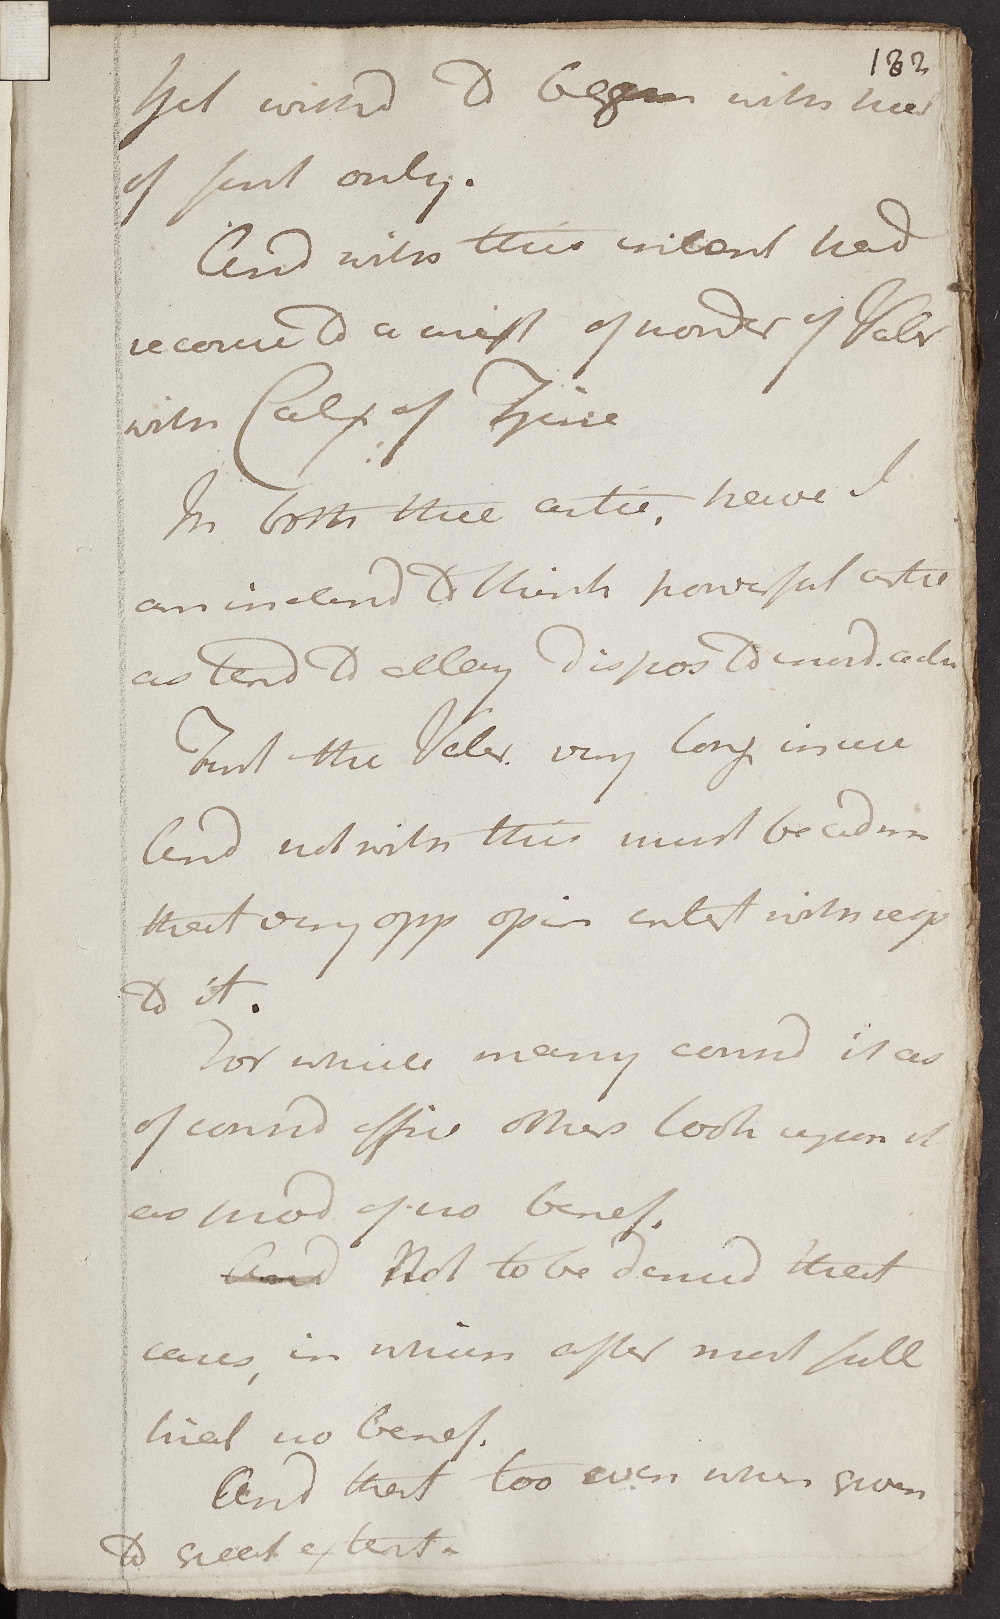 183
Yet wishd to begin with use
of first only.
And with this intent had
recourse to a mixt of powder of Valer
with Calx of Zinc
In both these artic, have I
am inclind to think powerful artic
as tend to allay dispos to inord. actn
First the Valer. very long in use
And notwith this must be adm
that very opp opin entert with resp
to it.
For while many consd it as
of consid effic others look upon it
as prod of no benef.
And Not to be denied that
cases, in which after most full
trial no benef.
And that too even when given
to great extent.